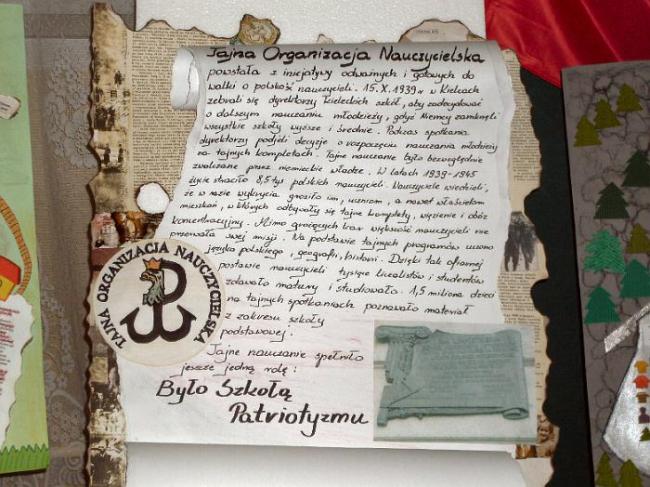 Tajna Organizacja Nauczycielska
powstała z inicjatywy odważnych i gotowych do
walki o polskość nauczycieli. 15.X.1939r w Kielcach
zebrali się dyrektorzy kieleckich szkół, aby zadecydować
o dalszym nauczaniu młodzieży, gdyż Niemcy zamknęli
wszystkie szkoły wyższe i średnie. Podczas spotkania
dyrektorzy podjeli decyzje o rozpoczęciu nauczania młodzieży
na tajnych kompletach. Tajne nauczanie było bezwzględnie
zwalczane przez niemieckie władze. W latach 1939-1945
życie straciło 8,5 tyś polskich nauczycieli. Nauczyciele wiedzieli,
że w razie wykrycia groziło im, uczniom, a nawet właścicielom
mieszkań, w których odbywały się tajne komplety, więzienie i obóz
koncentracyjny. Mimo grożących kar większość nauczycieli nie
przerwała swej misji. Na podstawie tajnych programów uczono
języka polskiego, geografii, historii. Dzięki tak ofiarnej
postawie nauczycieli tysiące licealistów i studentów
zdawało matury i studiowało. 1,5 miliona dzieci
na tajnych spotkaniach poznawało materiał
z zakresu szkoły
podstawowej.
Tajne nauczanie spełniło
jeszcze jedną rolę:
Było Szkołą
Patriotyzmu
TAJNA ORGANIZACJA NAUCZYCIELSKA